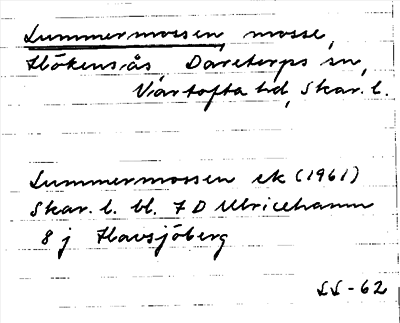 Lummermossen, mosse,
Hökensås Daretorps sn,
Vartofta hd, Skar. l.
Lummermossen ek (1961)
Skar. l. bl. 7 D Ulricehamn
8 j Havsjöberg
LL-62